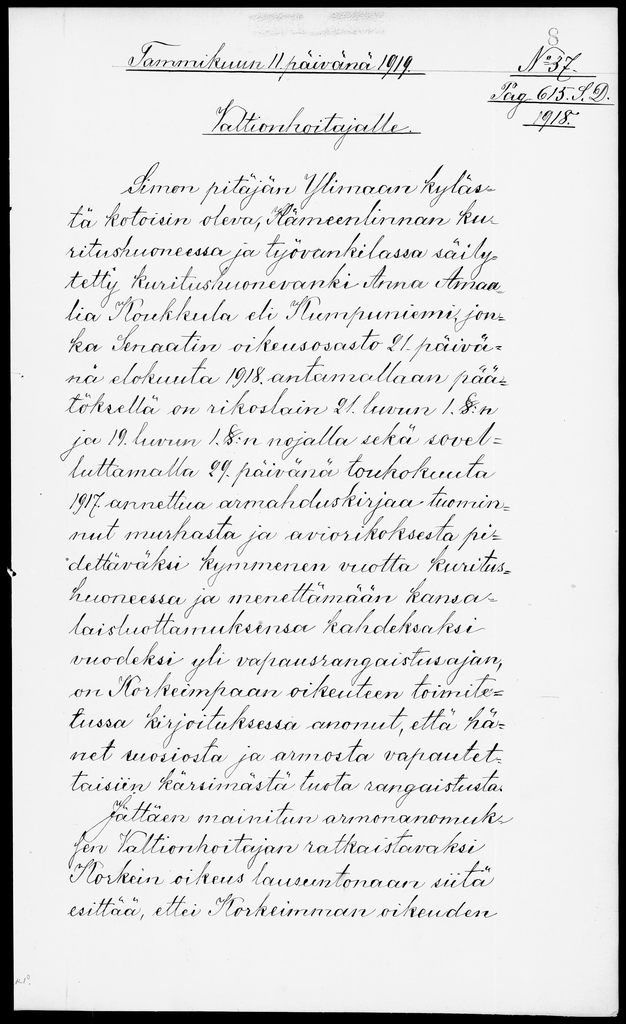 8
Tammikuun 11. päivänä 1919.
No 37.
Pag. 615. S. D.
1918.
Valtionhoitajalle.
Simon pitäjän Ylimaan kyläs=
tä kotoisin oleva, Hämeenlinnan ku=
ritushuoneessa ja työvankilassa säily=
tetty kuritushuonevanki Anna Amaa=
lia Koukkula eli Kumpuniemi, jon=
ka Senaatin oikeusosasto 21. päivä=
nä elokuuta 1918. antamallaan pää=
töksellä on rikoslain 21. luvun 1. §:n
ja 19. luvun 1. §:n nojalla sekä sovel=
luttamalla 29. päivänä toukokuuta
1917. annettua armahduskirjaa tuomin=
nut murhasta ja aviorikoksesta pi=
dettäväksi kymmenen vuotta kuritus=
huoneessa ja menettämään kansa=
laisluottamuksensa kahdeksaksi
vuodeksi yli vapausrangaistusajan,
on Korkeimpaan oikeuteen toimite=
tussa kirjoituksessa anonut, että hä=
net suosiosta ja armosta vapautet=
taisiin kärsimästä tuota rangaistusta.
Jättäen mainitun armonanomuk=
sen Valtionhoitajan ratkaistavaksi
Korkein oikeus lausuntonaan siitä
esittää, ettei Korkeimman oikeuden